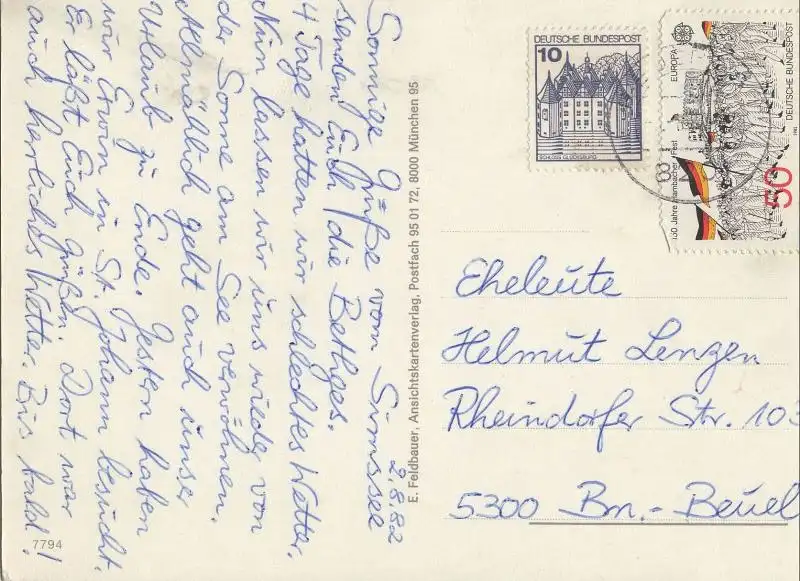 2.8.82
Sonnige Grüße vom Simssee
senden Euch die Bethges.
4 Tage hatten wir schlechtes Wetter.
Nun lassen wir uns wieder von
der Sonne am See verwöhnen.
Allmählich geht auch unser
Urlaub zu Ende. Gestern haben
wir Erwin in St. Johann besucht.
Er läßt Euch grüßen. Dort war
auch herrliches Wetter. Bis bald!
7794
E. Feldbauer, Ansichtskartenverlag, Postfach 95 01 72, 8000 München 95
DEUTSCHE BUNDESPOST
10
SCHLOSS GLÜCKSBURG
EUROPA
150 Jahre Hambacher Fest
DEUTSCHE BUNDESPOST
50
Eheleute
Helmut Lenzen
Rheindorfer Str. 103
5300 Bn.-Beuel